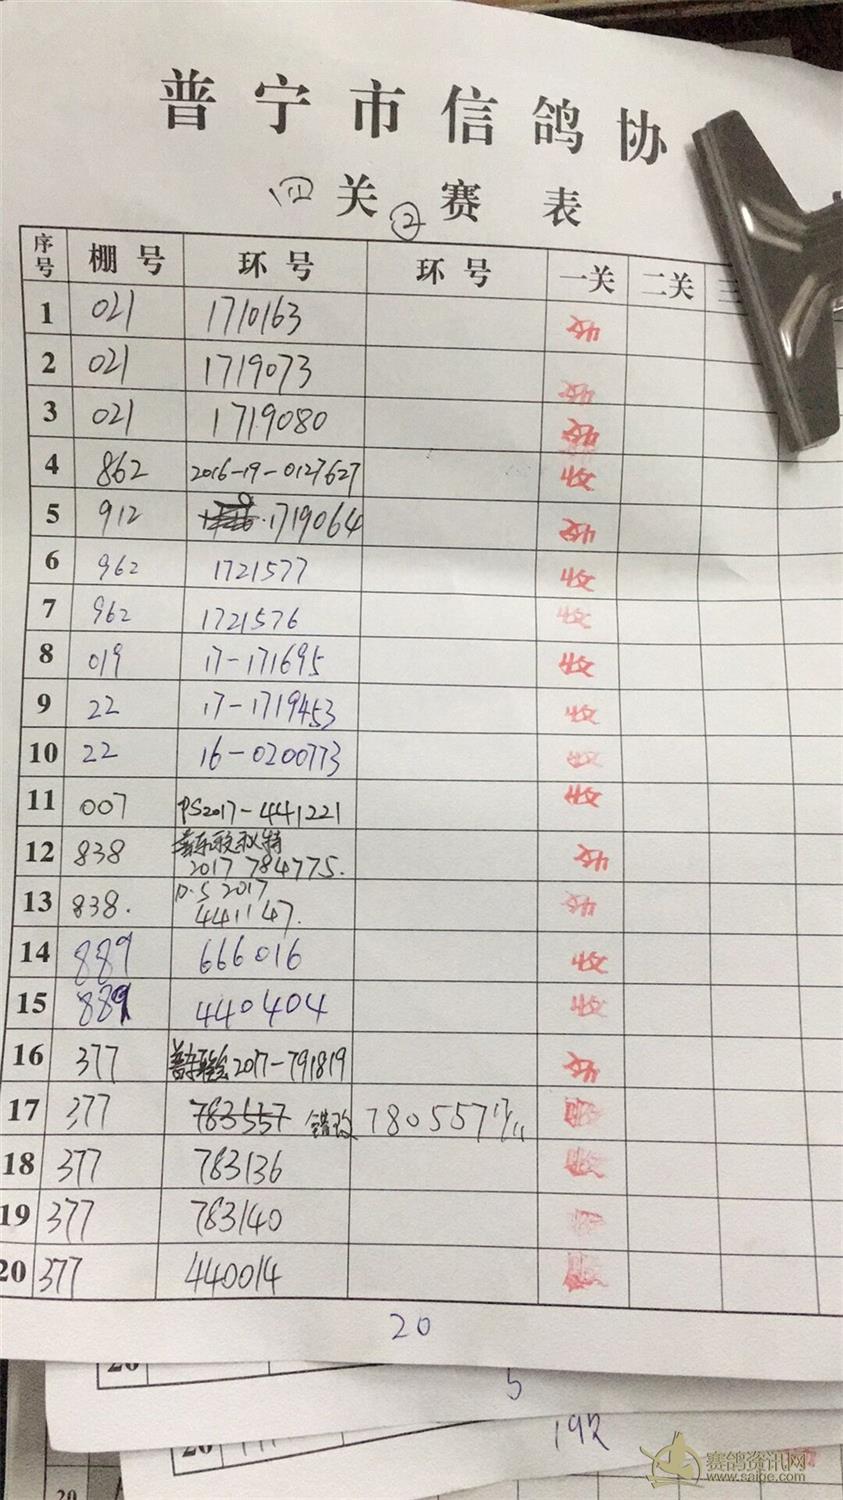 普宁市信鸽协
四关②赛表
序号 棚号 环号 环号 一关 二关 三
1 021 1710163 收
2 021 1719073 收
3 021 1719080 收
4 862 2016-19-0127627 收
5 912 1719064 收
6 962 1721577 收
7 962 1721576 收
8 019 17-171695 收
9 22 17-1719453 收
10 22 16-0200773 收
11 007 PS2017-441221 收
12 838 2017 784775. 收
13 838. P.S 2017 441147. 收
14 889 666016 收
15 889 440404 收
16 377 2017-791819 收
17 377 783557 错改 780557 收
18 377 783136 收
19 377 783140 收
20 377 440014 收
20
20
5
20
192
20
赛鸽资讯网
www.saige.com